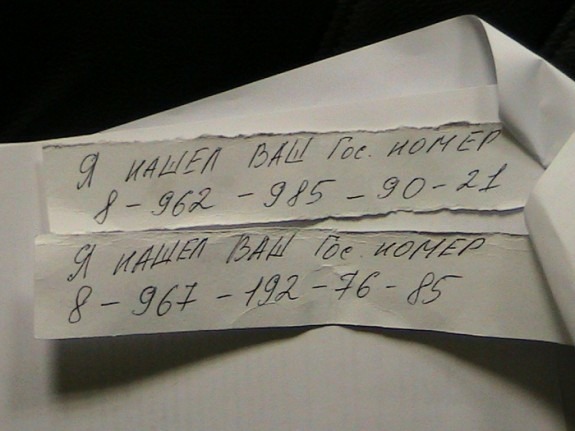 Я НАШЕЛ ВАШ Гос. НОМЕР
8-962-985-90-21
Я НАШЕЛ ВАШ Гос. НОМЕР
8-967-192-76-85